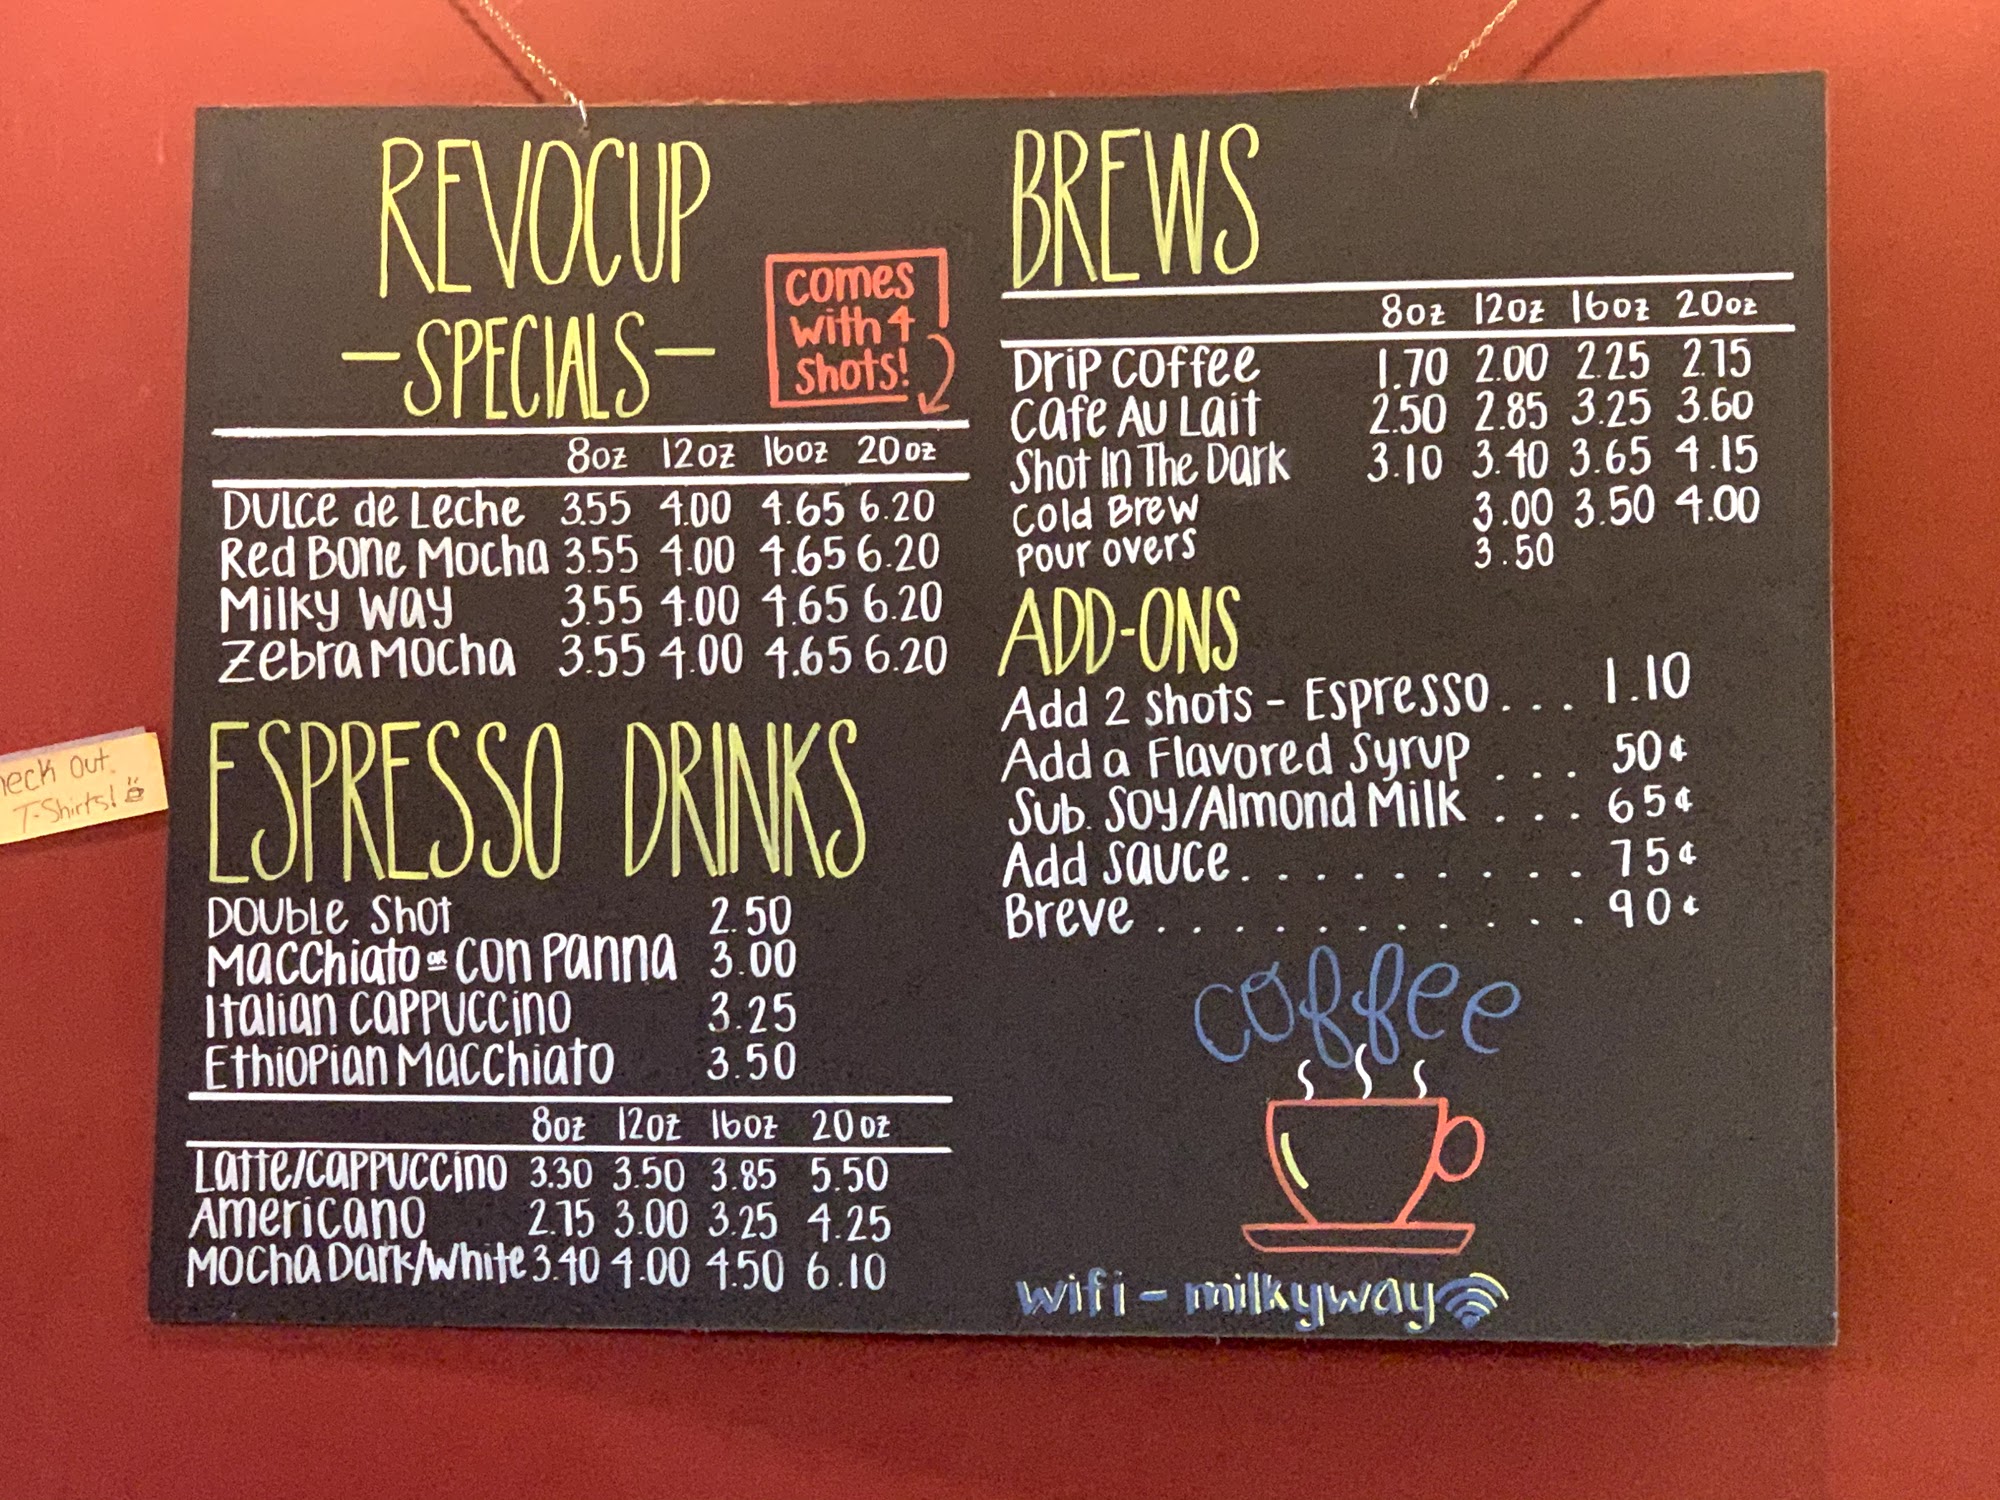 REVOCUP
-SPECIALS-
comes
with 4
shots!
8oz 12oz 16oz 20oz
Dulce de Leche 3.55 4.00 4.65 6.20
Red Bone Mocha 3.55 4.00 4.65 6.20
Milky Way 3.55 4.00 4.65 6.20
Zebra Mocha 3.55 4.00 4.65 6.20
ESPRESSO DRINKS
Double Shot 2.50
Macchiato or Con Panna 3.00
Italian Cappuccino 3.25
Ethiopian Macchiato 3.50
8oz 12oz 16oz 20oz
Latte/Cappuccino 3.30 3.50 3.85 5.50
Americano 2.75 3.00 3.25 4.25
Mocha Dark/White 3.40 4.00 4.50 6.10
BREWS
8oz 12oz 16oz 20oz
Drip Coffee 1.70 2.00 2.25 2.75
Cafe Au Lait 2.50 2.85 3.25 3.60
Shot In The Dark 3.10 3.40 3.65 4.15
Cold Brew 3.00 3.50 4.00
Pour overs 3.50
ADD-ONS
Add 2 shots - Espresso... 1.10
Add a Flavored Syrup ... 50¢
Sub. Soy/Almond Milk ... 65¢
Add sauce.......... 75¢
Breve ............ 90¢
coffee
wifi - milkyway
out.
T-Shirts!